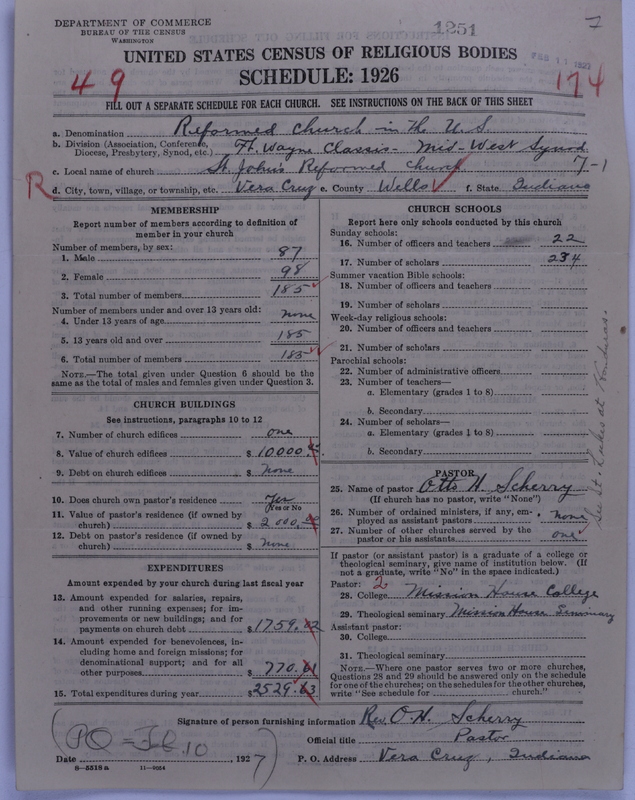 DEPARTMENT OF COMMERCE
BUREAU OF THE CENSUS
WASHINGTON
1251
7
UNITED STATES CENSUS OF RELIGIOUS BODIES
FEB 11 1927
SCHEDULE: 1926
49
174
FILL OUT A SEPARATE SCHEDULE FOR EACH CHURCH. SEE INSTRUCTIONS ON THE BACK OF THIS SHEET
a. Denomination Reformed Church in the U.S.
b. Division (Association, Conference, Diocese, Presbytery, Synod, etc.) Ft. Wayne Classis - Mid-West Synod
c. Local name of church St. Johns Reformed Church 7-1
R d. City, town, village, or township, etc. Vera Cruz e. County Wells f. State Indiana
MEMBERSHIP
Report number of members according to definition of
member in your church
Number of members, by sex:
1. Male 87
2. Female 98
3. Total number of members 185
Number of members under and over 13 years old:
4. Under 13 years of age none
5. 13 years old and over 185
6. Total number of members 185
NOTE.—The total given under Question 6 should be the
same as the total of males and females given under Question 3.
CHURCH BUILDINGS
See instructions, paragraphs 10 to 12
7. Number of church edifices one
8. Value of church edifices $ 10000.
9. Debt on church edifices $ none
10. Does church own pastor's residence Yes
(Yes or No)
11. Value of pastor's residence (if owned by
church) $ 2000.
12. Debt on pastor's residence (if owned by
church) $ none
EXPENDITURES
Amount expended by your church during last fiscal year
13. Amount expended for salaries, repairs,
and other running expenses; for im-
provements or new buildings; and for
payments on church debt $ 1759.02
14. Amount expended for benevolences, in-
cluding home and foreign missions; for
denominational support; and for all
other purposes $ 770.61
15. Total expenditures during year $ 2529.63
CHURCH SCHOOLS
Report here only schools conducted by this church
Sunday schools:
16. Number of officers and teachers 22
17. Number of scholars 234
Summer vacation Bible schools:
18. Number of officers and teachers
19. Number of scholars
Week-day religious schools:
20. Number of officers and teachers
21. Number of scholars
Parochial schools:
22. Number of administrative officers
23. Number of teachers—
a. Elementary (grades 1 to 8)
b. Secondary
24. Number of scholars—
a. Elementary (grades 1 to 8)
b. Secondary
PASTOR
25. Name of pastor Otto H. Scherry
(If church has no pastor, write "None")
26. Number of ordained ministers, if any, em-
ployed as assistant pastors none
27. Number of other churches served by the
pastor or his assistants one
If pastor (or assistant pastor) is a graduate of a college or
theological seminary, give name of institution below. (If
not a graduate, write "No" in the space indicated.)
Pastor: 2
28. College Mission House College
29. Theological seminary Mission House Seminary
Assistant pastor:
30. College
31. Theological seminary
NOTE.—Where one pastor serves two or more churches,
Questions 28 and 29 should be answered only on the schedule
for one of the churches; on the schedules for the other churches,
write "See schedule for church."
See St. Lukes at
Signature of person furnishing information Rev. O. H. Scherry
Official title Pastor
(PO = Feb. 10
Date , 1927) P. O. Address Vera Cruz, Indiana
8—5518 a 11—9254